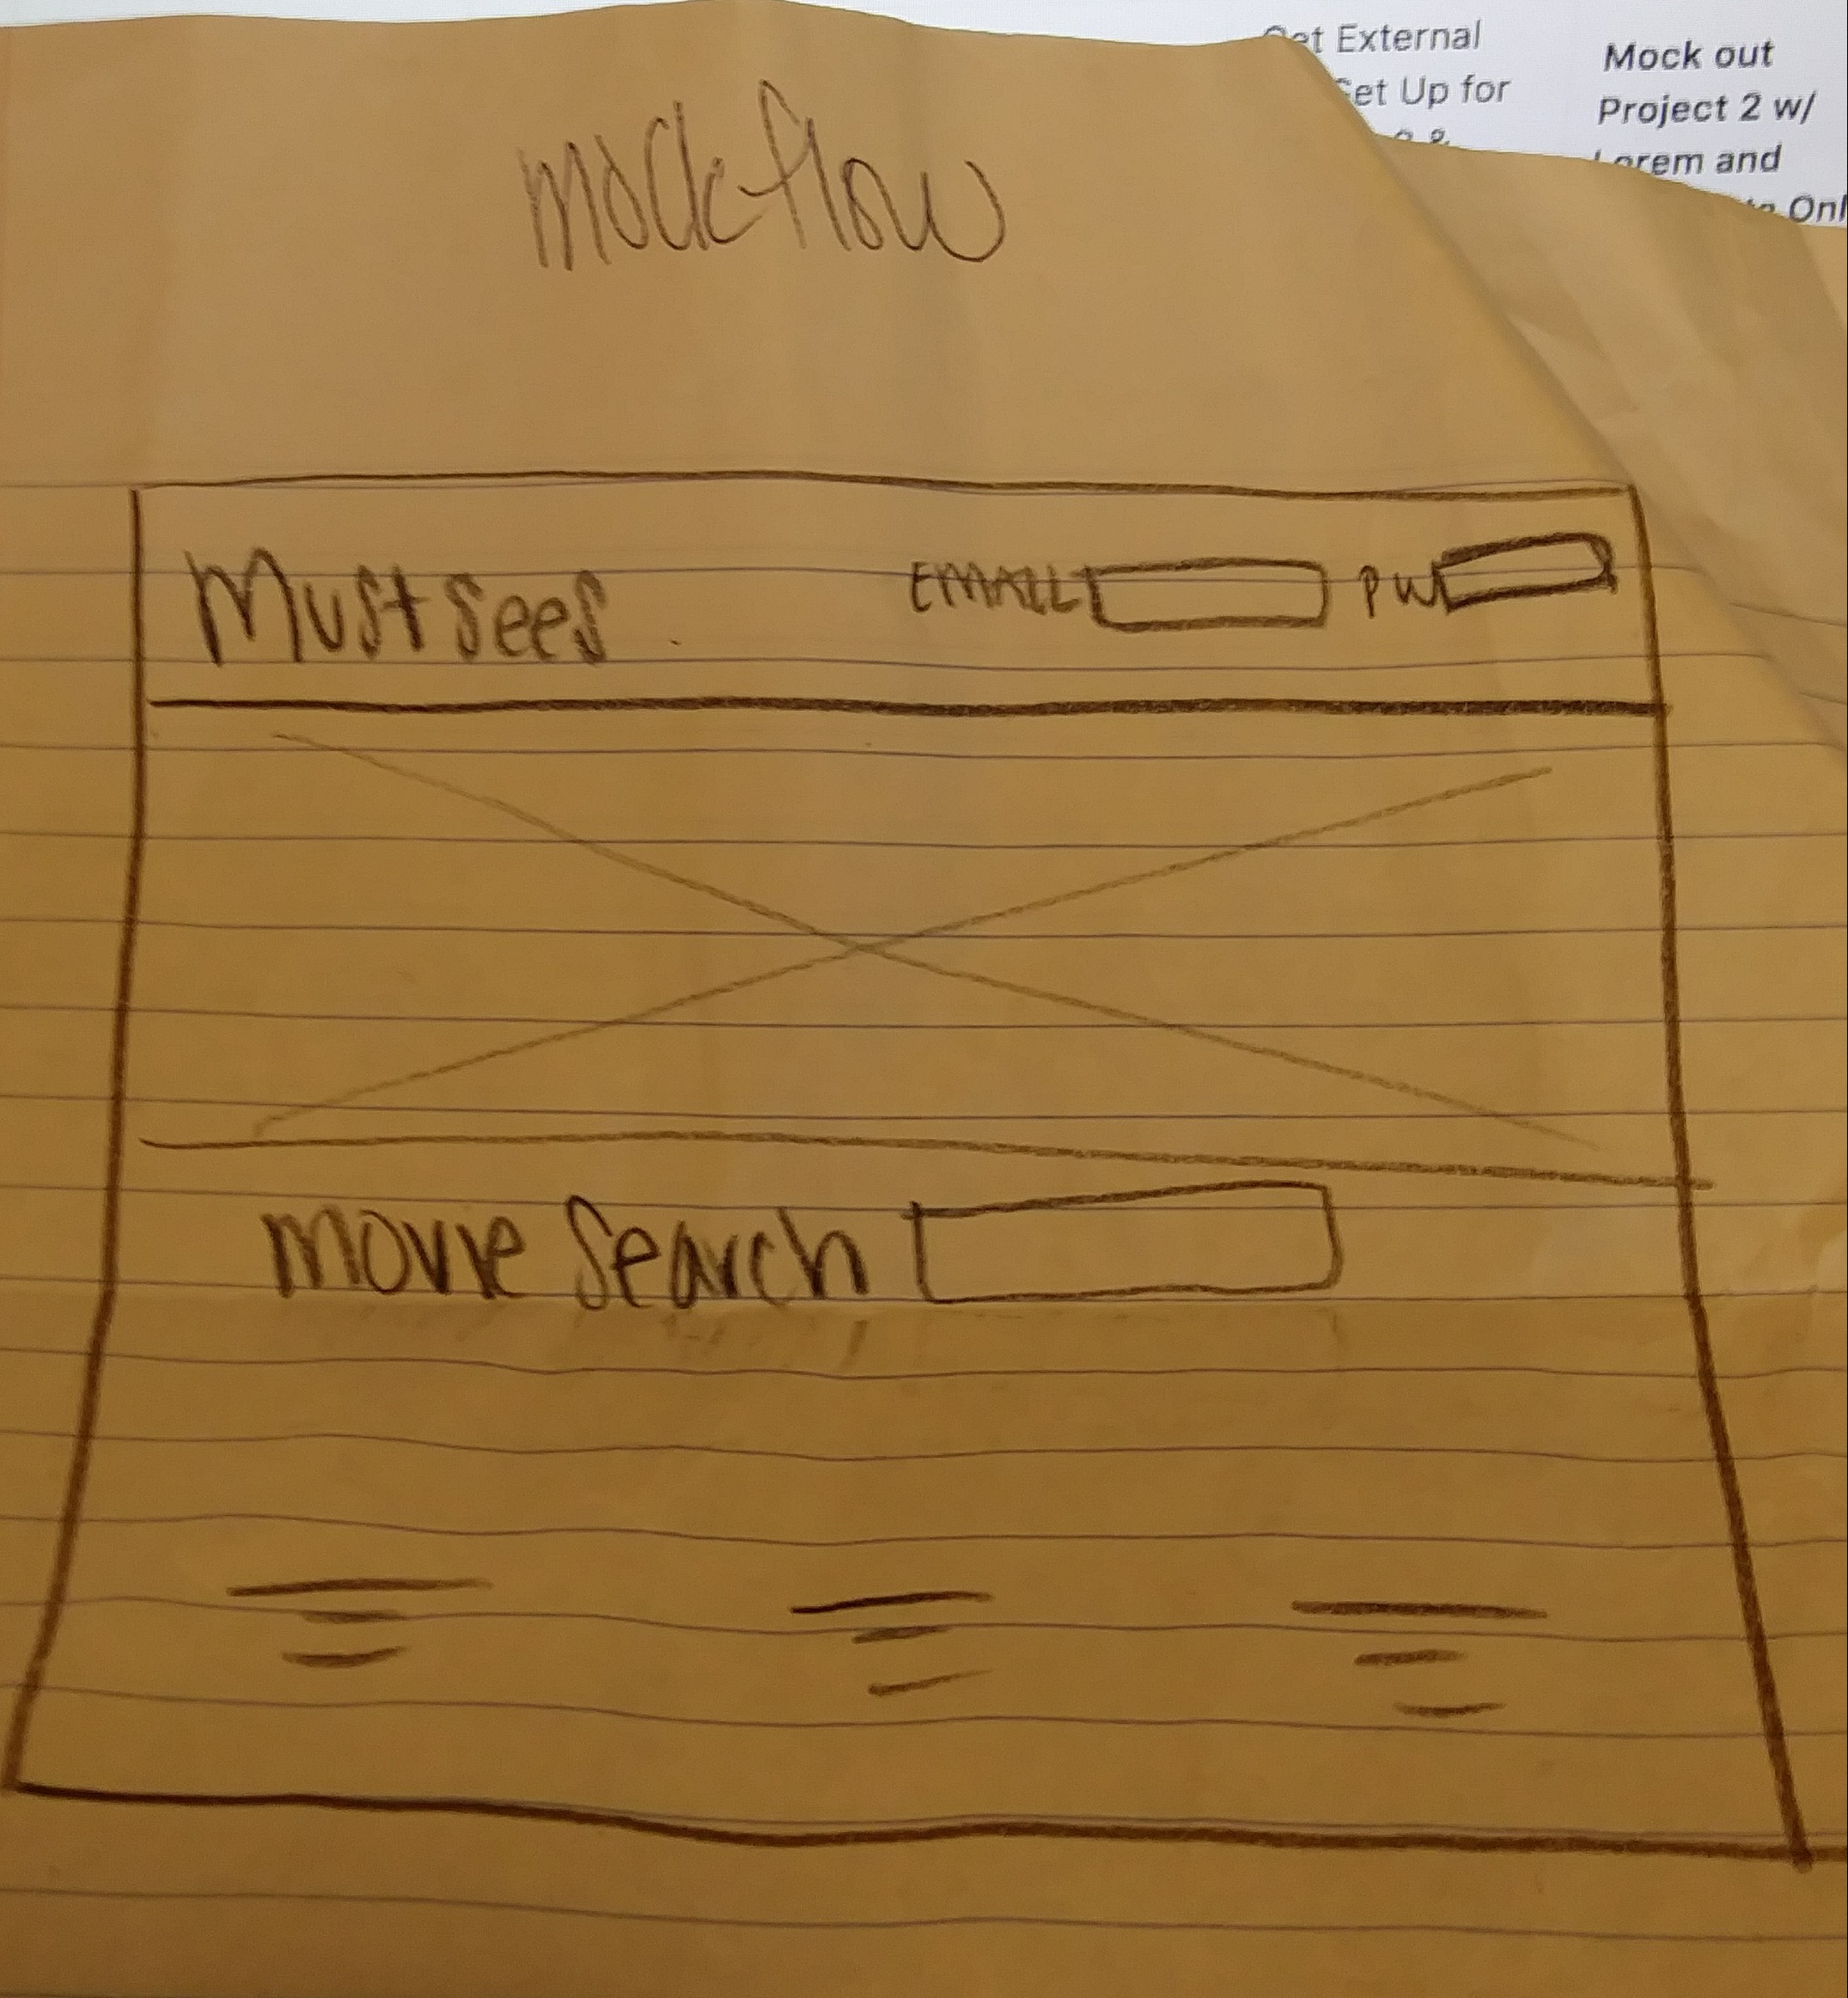 Get External
Set Up for
Mock out
Project 2 w/
Lorem and
mockflow
Must sees EMAIL PW
movie Search